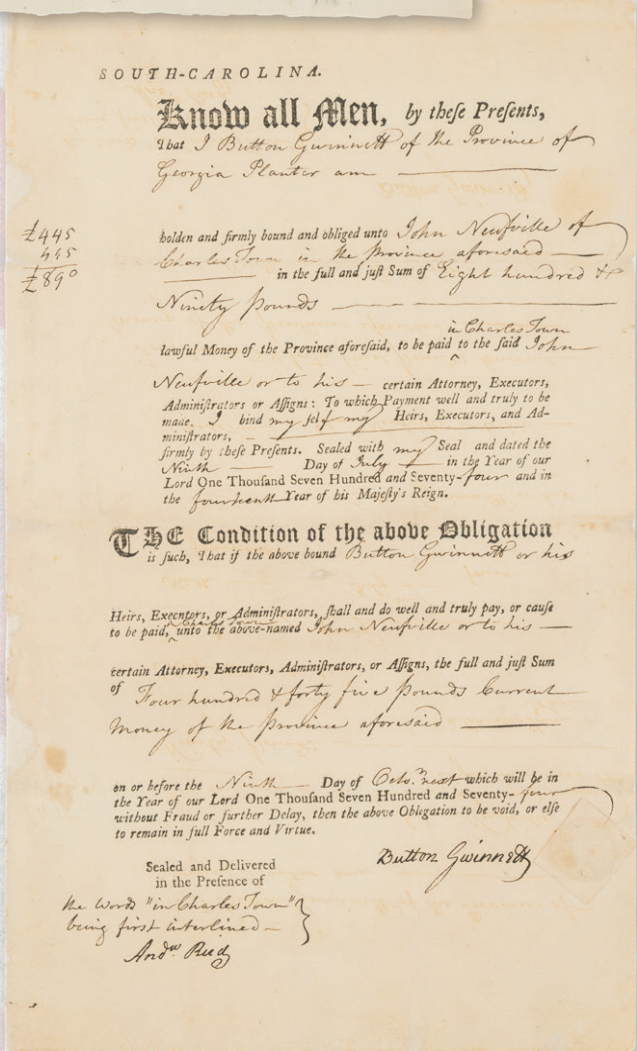 SOUTH-CAROLINA.
Know all Men, by theſe Preſents,
That I Button Gwinnett of the Province of
Georgia Planter am
£445
445
£890
holden and firmly bound and obliged unto John Neufville of
Charles Town in the Province aforesaid
in the full and juſt Sum of Eight hundred &
Ninety Pounds
in Charles Town
lawful Money of the Province aforeſaid, to be paid ^ to the ſaid John
Neufville or to his certain Attorney, Executors,
Adminiſtrators or Aſſigns: To which Payment well and truly to be
made, I bind my self my Heirs, Executors, and Ad-
miniſtrators,
firmly by theſe Preſents. Sealed with my Seal and dated the
Ninth Day of July in the Year of our
Lord One Thouſand Seven Hundred and Seventy-four and in
the fourteenth Year of his Majeſty's Reign.
THE Condition of the above Obligation
is ſuch, That if the above bound Button Gwinnett or his
Heirs, Executors, or Adminiſtrators, ſhall and do well and truly pay, or cauſe
in Charles Town
to be paid, ^ unto the above-named John Neufville or to his
certain Attorney, Executors, Adminiſtrators, or Aſſigns, the full and juſt Sum
of Four hundred & forty five Pounds Current
Money of the Province aforesaid
on or before the Ninth Day of Octo.r next which will be in
the Year of our Lord One Thouſand Seven Hundred and Seventy-four
without Fraud or further Delay, then the above Obligation to be void, or elſe
to remain in full Force and Virtue.
Button Gwinnett
Sealed and Delivered
in the Preſence of
the Words "in Charles Town"
being first interlined
And.w Reid